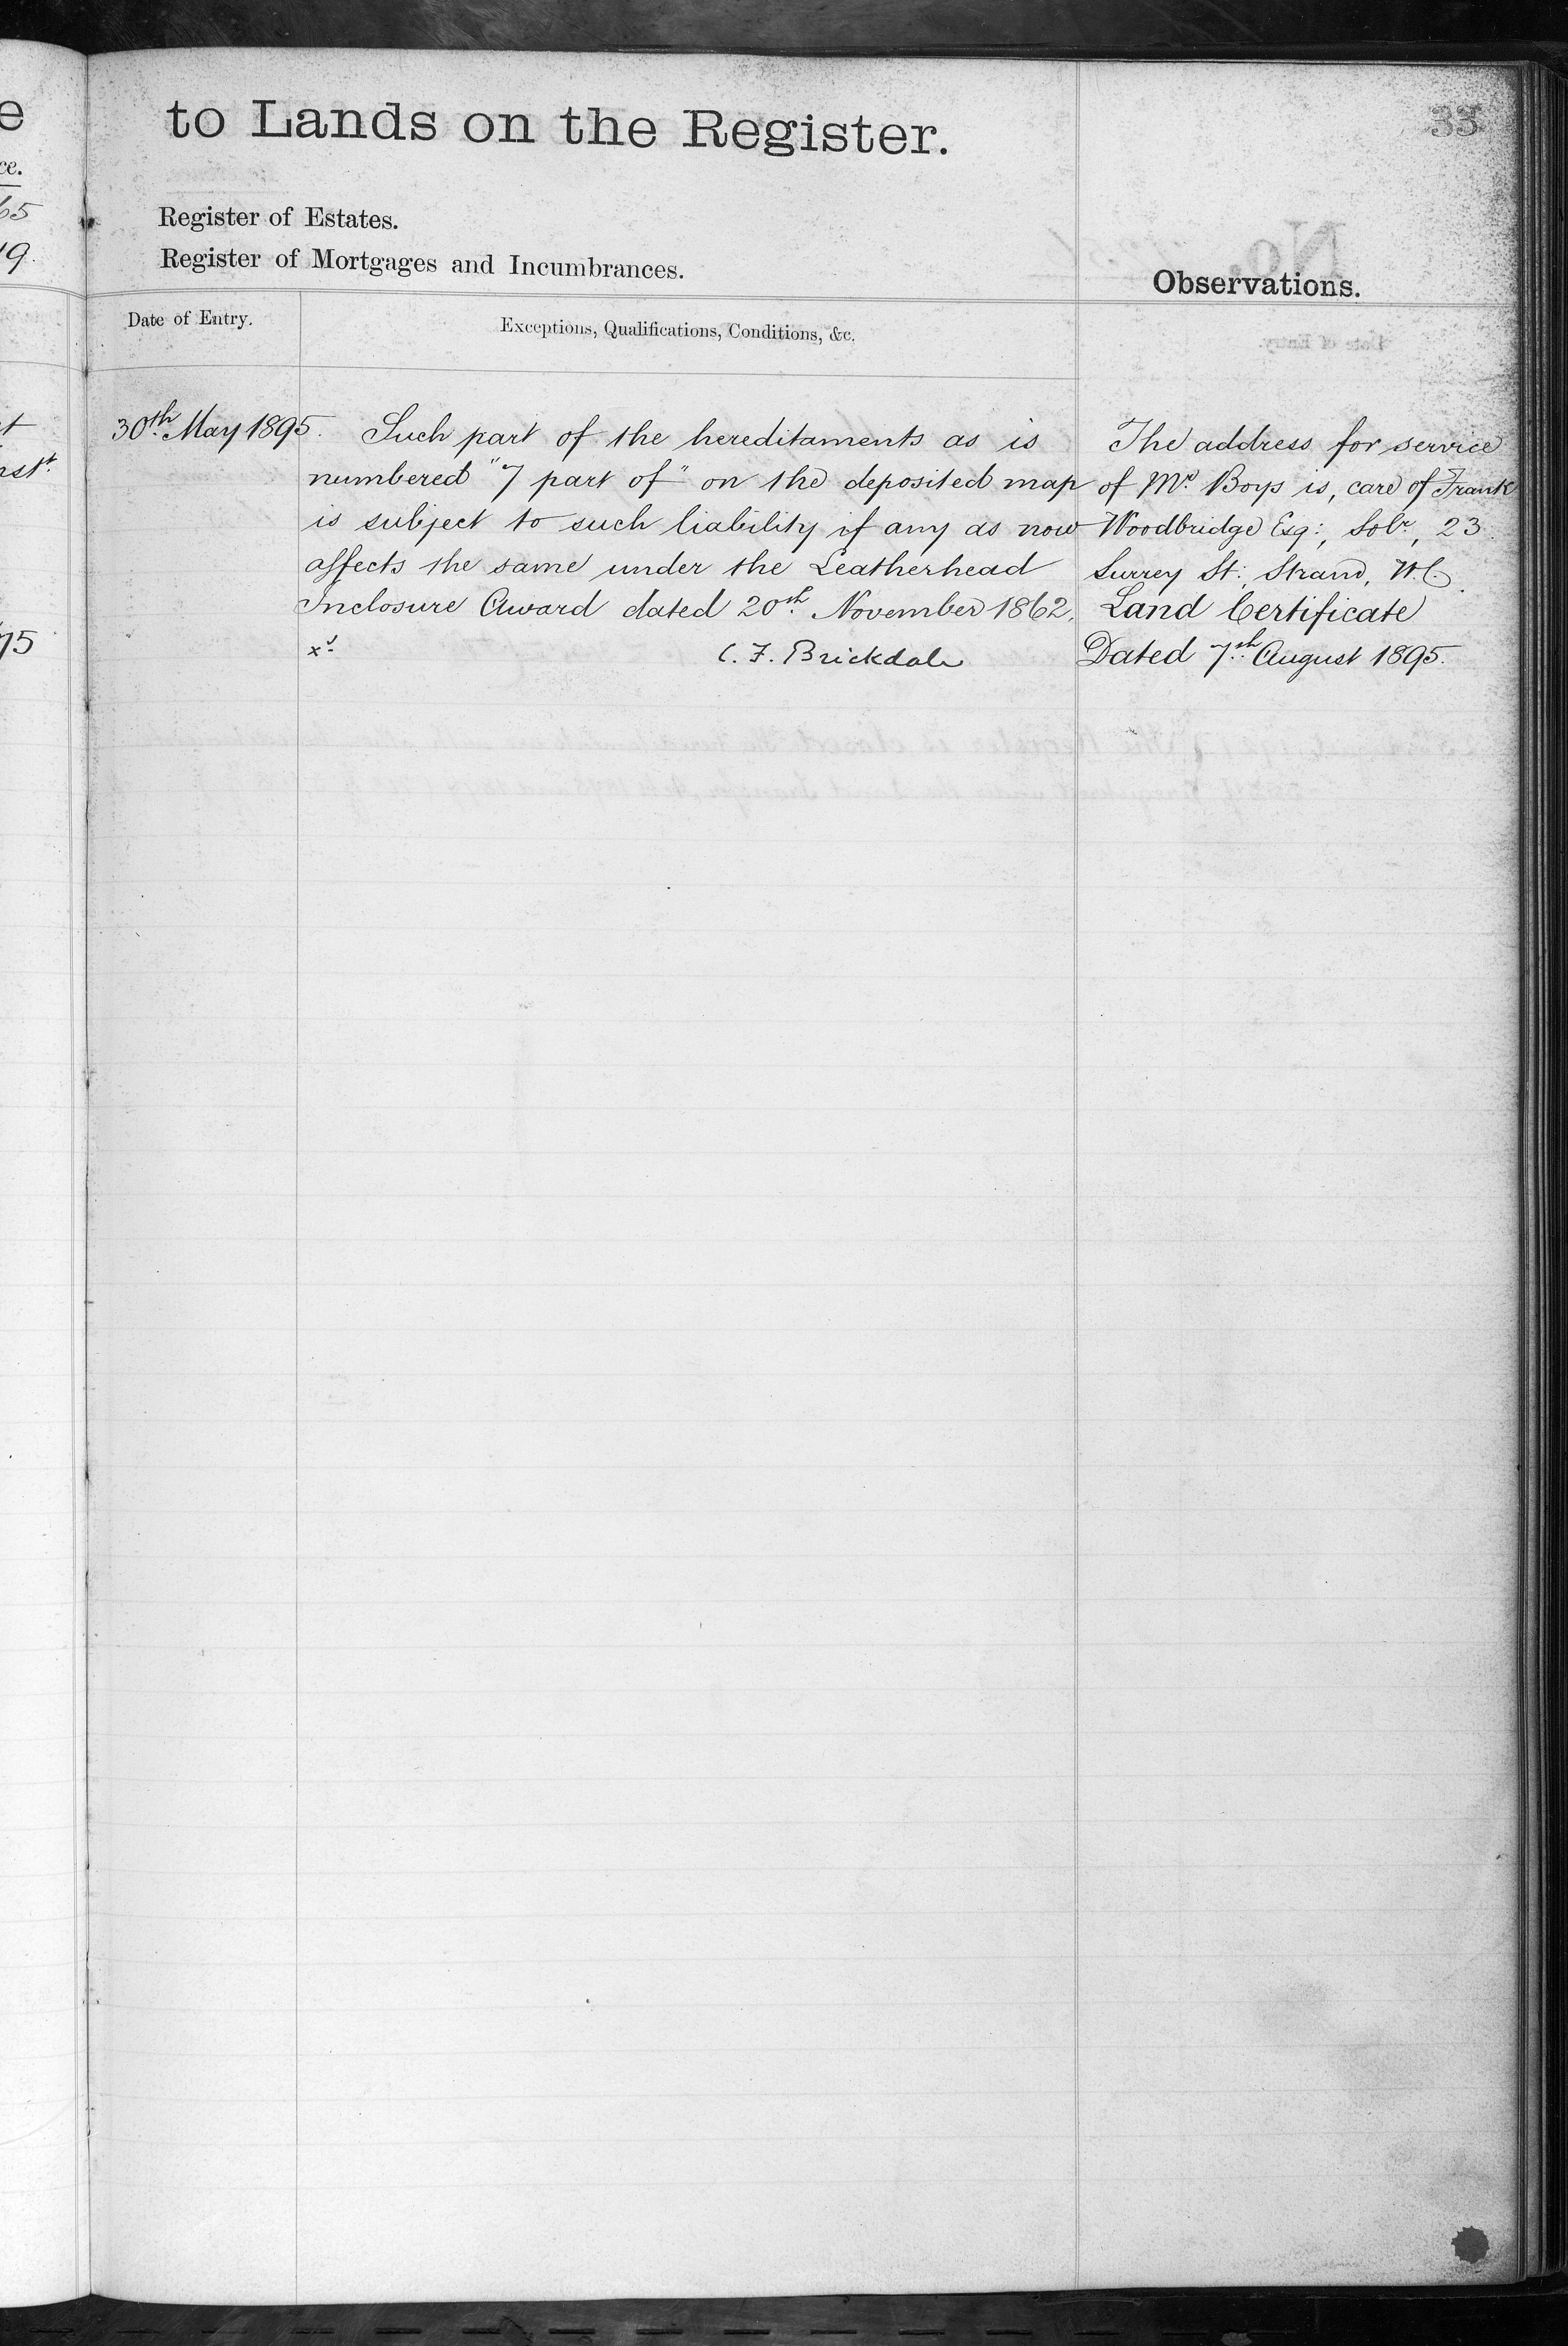 33
to Lands on the Register.
Register of Estates.
Register of Mortgages and Incumbrances.
Observations.
Date of Entry.
Exceptions, Qualifications, Conditions, &c.
30th May 1895.
Such part of the hereditaments as is
numbered "7 part of" on the deposited map
is subject to such liability if any as now
affects the same under the Leatherhead
Inclosure Award dated 20th November 1862.
C. F. Brickdale
The address for service
of Mr Boys is, care of Frank
Woodbridge Esq:, Solr, 23
Surrey St: Strand, W.C.
Land Certificate
Dated 7th August 1895.